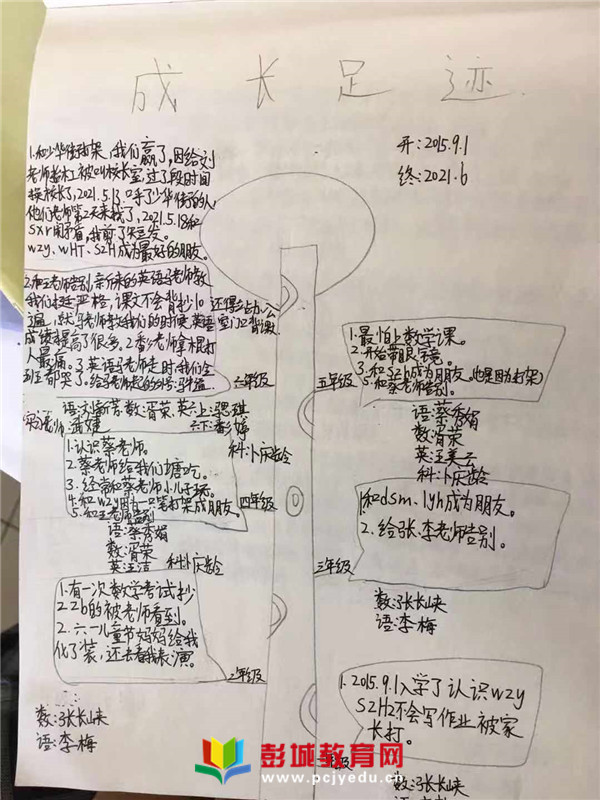 成长足迹
开:2015.9.1
终:2021.6
1.和少华街打架,我们赢了,因给刘
老师
被叫校长室,过了段时间
换校长了,2021.5.13
了少华街的人
他们老师第2天来找了,2021.5.18和
sxr闹矛盾,我剪了短发。
wzy、WHT、SZH成为最好的朋友。
2.和王老师告别,新来的英语马老师教
我们挺严格,课文不会背抄10
遍,还得去办公室门口背课文
马老师教我们的时候,英语
成绩提高了很多。2.潘老师拿棍打
人最痛。3.英语马老师走时我们全
班都哭了。给马老师起的外号:
六年级
语:刘新芳 数:胥荣 英六上:
六下:
实习老师
科:卜庆龄
1.最怕上数学课。
2.开始带眼镜。
3.和szh成为朋友(也是因为打架)
5.和蔡老师告别。
五年级
语:蔡秀娟
数:胥荣
英:王美云
科:卜庆龄
1.认识蔡老师。
2.蔡老师给我们糖吃。
3.经常和蔡老师小儿子玩。
4.和wzy因为一只笔打架成朋友。
5.和王老师告别
四年级
语:蔡秀娟
数:胥荣
英:王洁
科:卜庆龄
1.和dsm、lyh成为朋友。
2.给张、李老师告别。
三年级
数:张长峡
语:李梅
1.有一次数学考试抄
zzb的被老师看到。
2.六一儿童节妈妈给我
化了装,还去看我表演。
二年级
数:张长峡
语:李梅
1.2015.9.1入学了认识wzy
SZHz不会写作业被家
长打。
一年级
数:张长峡
彭城教育网
www.pcjyedu.cn